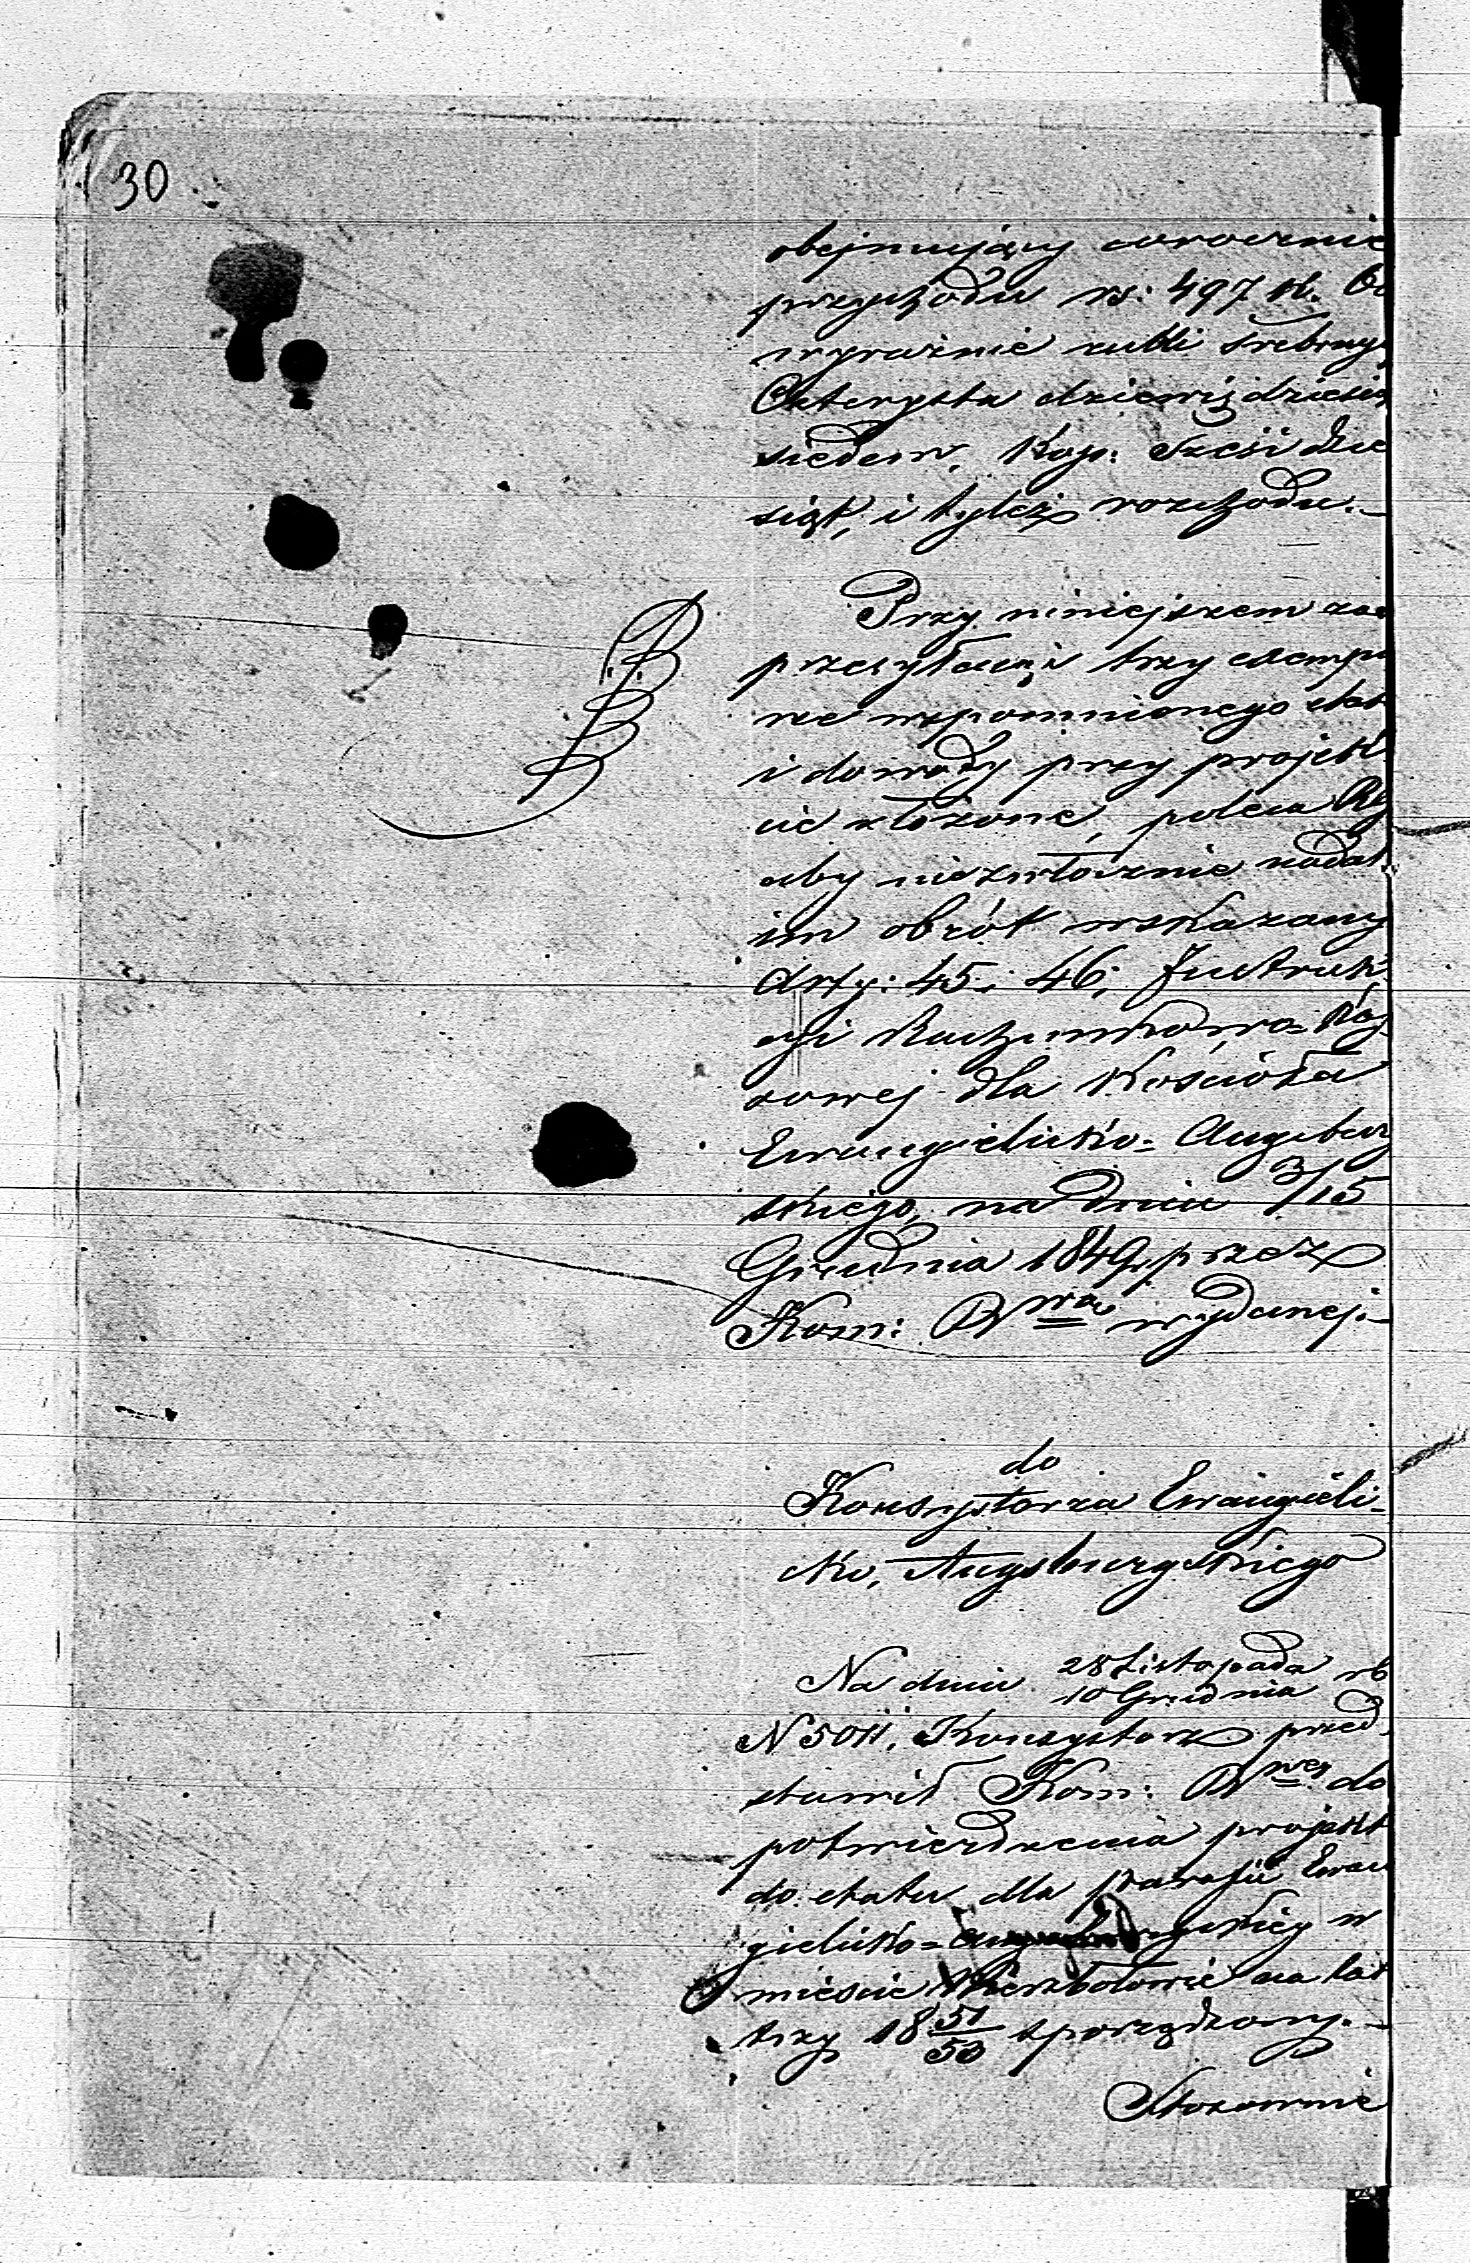 30
obejmujący corocznie
przychodu rs: 497 k. 60
wyraźnie rubli srebrny
Czterysta dziewięćdziesiąt
siedem, Kop: sześćdzie
siąt, i tyleż rozchodu.-
Przy niniejszem za
przesyłając trzy exempla
rze wspomnionego etat
i dowody przy projek
cie złożone, poleca
aby niezwłocznie nadał
im obrót wskazany
Arty: 45 i 46, Instruk
cyi Rachunkowo= Kas
sowej dla Kościoła
Ewangielicko= Augsbur
skiego, na dniu 3/15
Grudnia 1849, przez
Kom: Rwą wydanej.-
do
Konsystorza Ewangieli-
cko, Augsburgskiego
Na dniu 28 Listopada rb
10 Grudnia
N 5011, Konsystorz przed
stawił Kom: Rwej do
potwierdzenia projekt
do etatu dla parafii Ewan
gielicko= Augsburgskiey w
mieście Wierzbołowie na lat
trzy 18 51/53 sporządzony.-
Stosownie